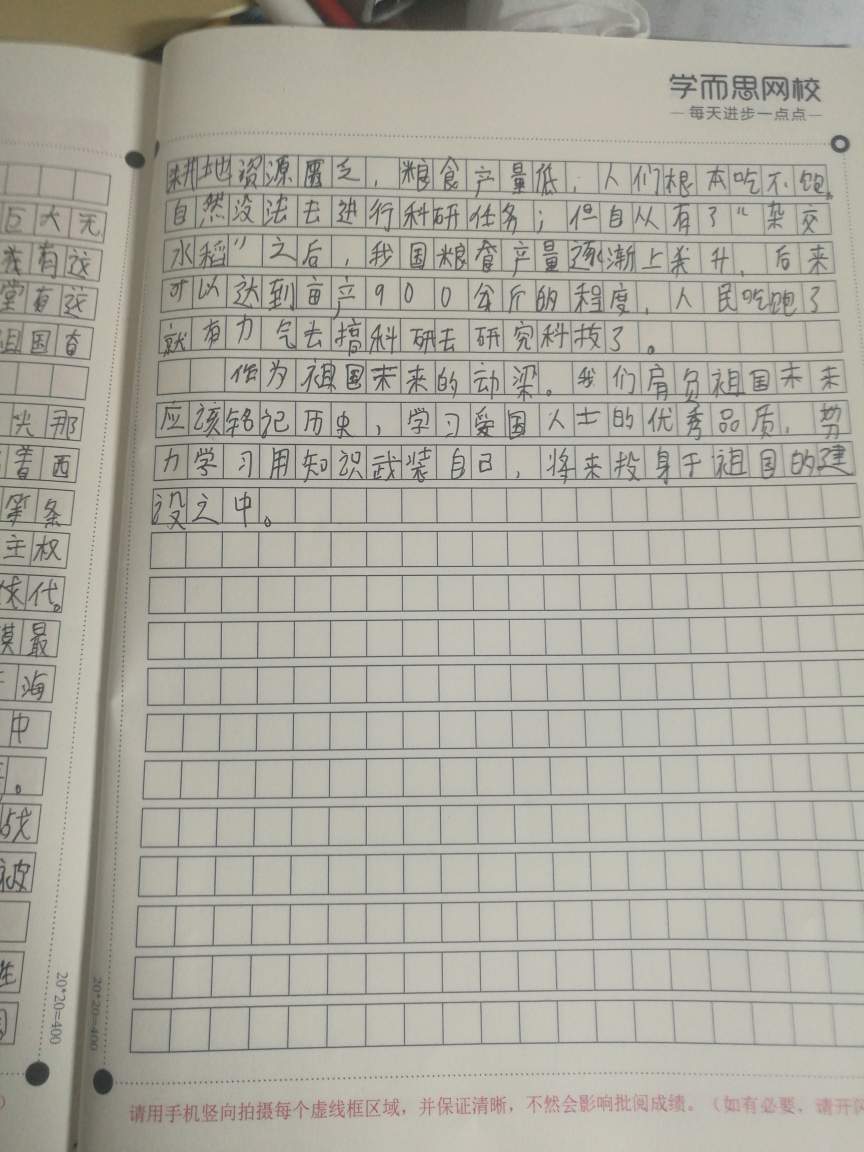 学而思网校
—每天进步一点点—
巨大无
我有这
堂有这
祖国有
光那
着西
等条
主权
代。
最
海
中
。
战
被
20*20=400
耕地资源匮乏，粮食产量低，人们根本吃不饱。
自然没法去进行科研任务；但自从有了"杂交
水稻"之后，我国粮食产量逐渐上升，后来
可以达到亩产900公斤的程度，人民吃饱了
就有力气去搞科研去研究科技了。
作为祖国未来的动梁。我们肩负祖国未来
应该铭记历史，学习爱国人士的优秀品质，努
力学习用知识武装自己，将来投身于祖国的建
设之中。
20*20=400
请用手机竖向拍摄每个虚线框区域，并保证清晰，不然会影响批阅成绩。（如有必要，请开闪